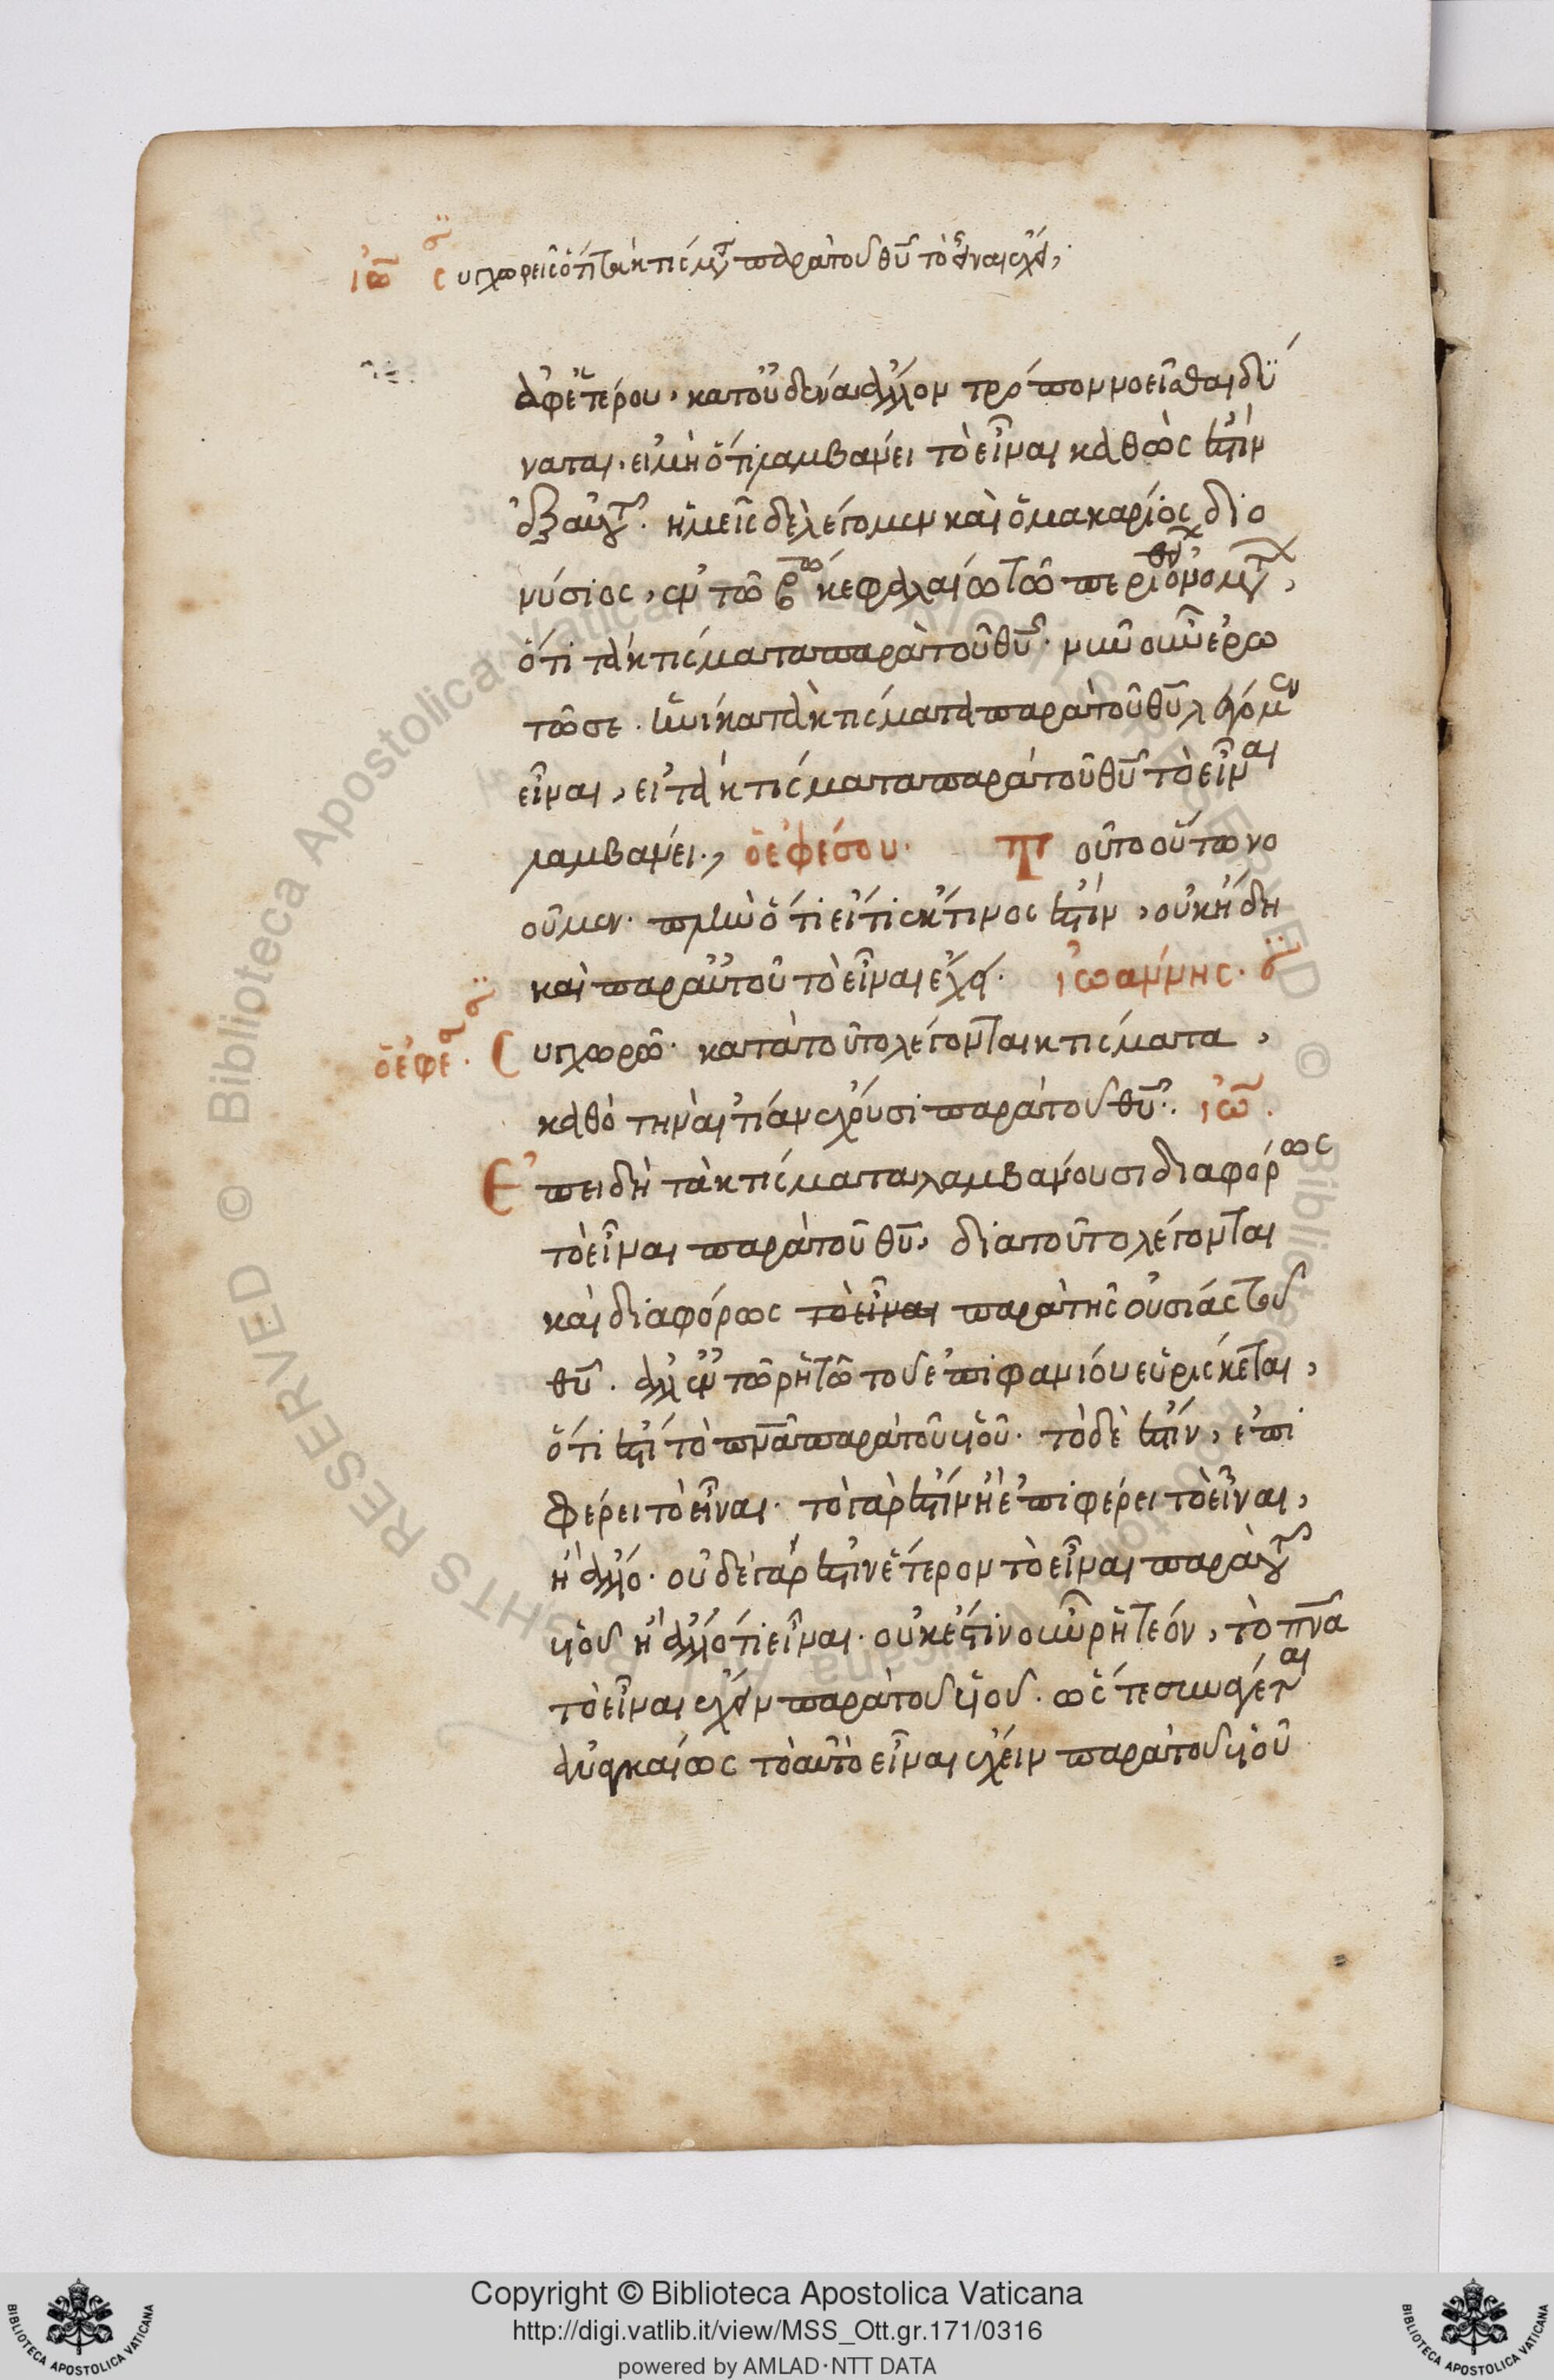 ἰω̅ συγχωρεῖς ὅτι τὰ κτίσματα παρὰ τοῦ θυ̅ τὸ εἶναι ἔχει,
ἀφ' ἑτέρου, κατ' οὐδένα ἄλλον τρόπον νοεῖσθαι δύ
ναται, εἰ μὴ ὅτι λαμβάνει τὸ εἶναι καθώς ἐστιν
ἐξ αὐτοῦ. ἡμεῖς δὲ λέγομεν καὶ ὁ μακάριος διο
νύσιος, ἐν τῶ κεφαλαίω τῶ περὶ θείων ὀνομάτων,
ὅτι τὰ κτίσματα παρὰ τοῦ θυ̅. νῦν οὖν ἐρω
τῶ σε. ἡνίκα τὰ κτίσματα παρὰ τοῦ θυ̅ λέγομεν
εἶναι, εἰ τὰ κτίσματα παρὰ τοῦ θυ̅ τὸ εἶναι
λαμβάνει., ὁ ἐφέσου. Τοῦτο οὕτω νο
οῦμεν. πλὴν ὅτι εἴ τις κτίσις ἐστίν, οὐκ ἤδη
καὶ παρ' αὐτοῦ τὸ εἶναι ἔχει. ἰωάννης.
ὁ ἐφέ. Συγχωρῶ. κατὰ τοῦτο λέγονται κτίσματα,
καθὸ τὴν αἰτίαν ἔχουσι παρὰ τοῦ θυ̅. ἰω̅.
Ἐπειδὴ τὰ κτίσματα λαμβάνουσι διαφόρως
τὸ εἶναι παρὰ τοῦ θυ̅, διὰ τοῦτο λέγονται
καὶ διαφόρως τὸ εἶναι παρὰ τῆς οὐσίας τοῦ
θυ̅. ἀλλ' ἐν τῶ ῥητῶ τοῦ ἐπιφανίου εὑρίσκεται,
ὅτι ἐστὶ τὸ πνα̅ παρὰ τοῦ υἱοῦ. τὸ δὲ ἐστίν, ἐπι
φέρει τὸ εἶναι. τὸ γὰρ ἐστὶν ἢ ἐπιφέρει τὸ εἶναι,
ἢ ἄλλο. οὐδὲ γάρ ἐστιν ἕτερον τὸ εἶναι παρὰ τοῦ
υἱοῦ ἢ ἄλλό τι εἶναι. οὐκ ἔστιν οὖν ῥητέον, τὸ πνα̅
τὸ εἶναι ἔχειν παρὰ τοῦ υἱοῦ. ὥστε συνάγεται
ἀναγκαίως τὸ αὐτὸ εἶναι ἔχειν παρὰ τοῦ υἱοῦ
Copyright © Biblioteca Apostolica Vaticana
http://digi.vatlib.it/view/MSS_Ott.gr.171/0316
powered by AMLAD·NTT DATA